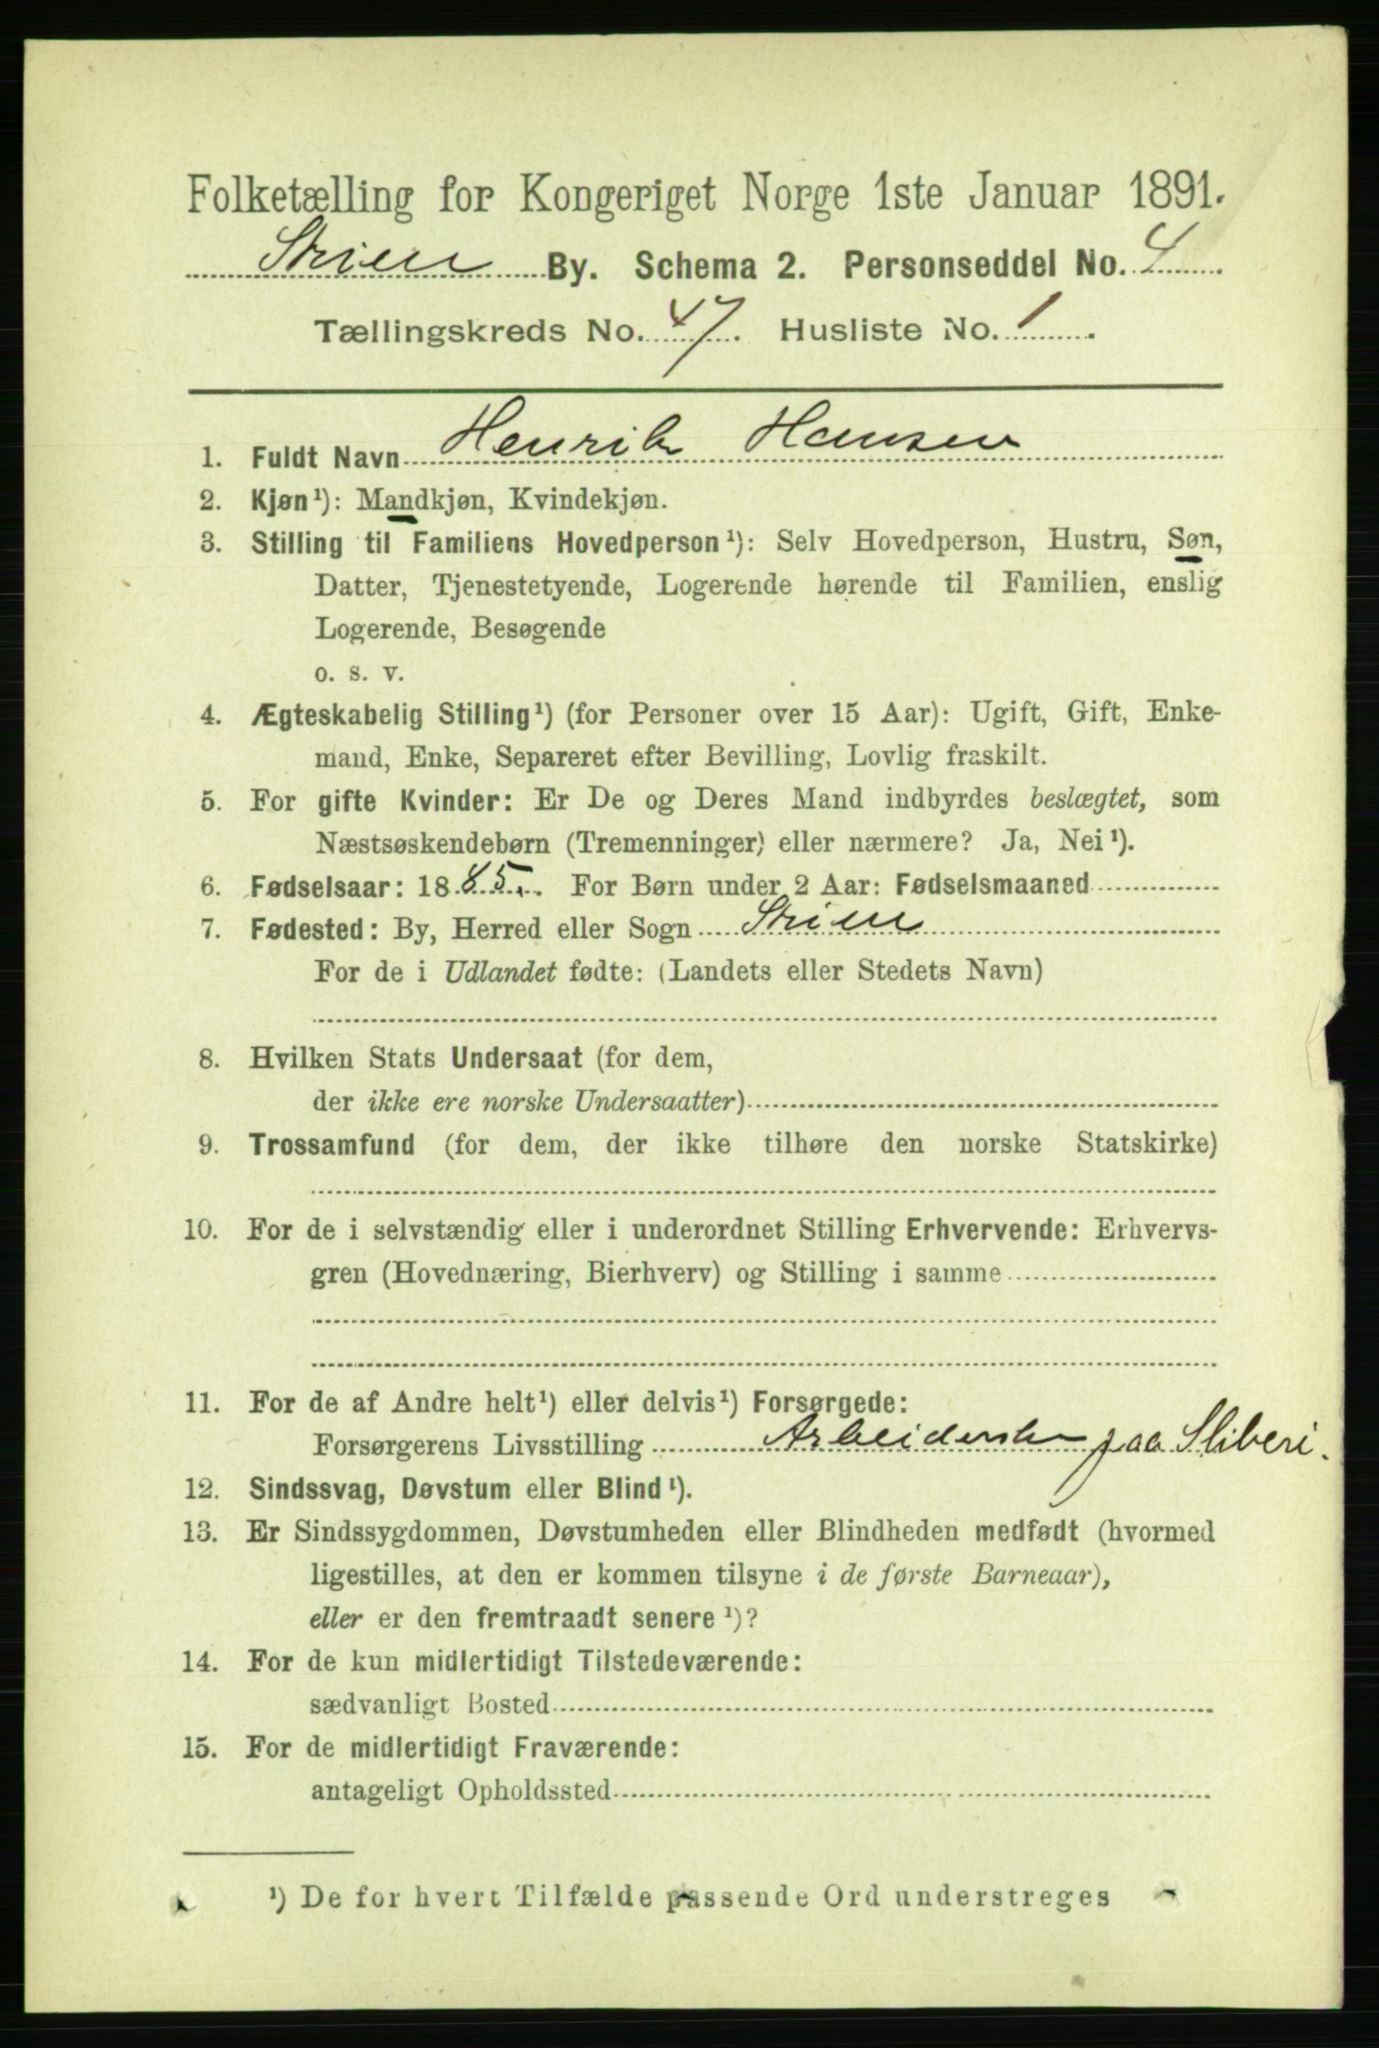 Folketælling for Kongeriget Norge 1ste Januar 1891.
Skien By. Schema 2. Personseddel No. 4
Tællingskreds No. 47. Husliste No. 1
1. Fuldt Navn Henrik Hansen
2. Kjøn¹): Mandkjøn, Kvindekjøn.
3. Stilling til Familiens Hovedperson¹): Selv Hovedperson, Hustru, Søn,
Datter, Tjenestetyende, Logerende hørende til Familien, enslig
Logerende, Besøgende
o. s. v.
4. Ægteskabelig Stilling¹) (for Personer over 15 Aar): Ugift, Gift, Enke-
mand, Enke, Separeret efter Bevilling, Lovlig fraskilt.
5. For gifte Kvinder: Er De og Deres Mand indbyrdes beslægtet, som
Næstsøskendebørn (Tremenninger) eller nærmere? Ja, Nei¹).
6. Fødselsaar: 1885. For Børn under 2 Aar: Fødselsmaaned
7. Fødested: By, Herred eller Sogn Skien
For de i Udlandet fødte: (Landets eller Stedets Navn)
8. Hvilken Stats Undersaat (for dem,
der ikke ere norske Undersaatter)
9. Trossamfund (for dem, der ikke tilhøre den norske Statskirke)
10. For de i selvstændig eller i underordnet Stilling Erhvervende: Erhvervs-
gren (Hovednæring, Bierhverv) og Stilling i samme
11. For de af Andre helt¹) eller delvis¹) Forsørgede:
Forsørgerens Livsstilling Arbeiderske paa Sliberi.
12. Sindssvag, Døvstum eller Blind¹).
13. Er Sindssygdommen, Døvstumheden eller Blindheden medfødt (hvormed
ligestilles, at den er kommen tilsyne i de første Barneaar),
eller er den fremtraadt senere¹)?
14. For de kun midlertidigt Tilstedeværende:
sædvanligt Bosted
15. For de midlertidigt Fraværende:
antageligt Opholdssted
¹) De for hvert Tilfælde passende Ord understreges